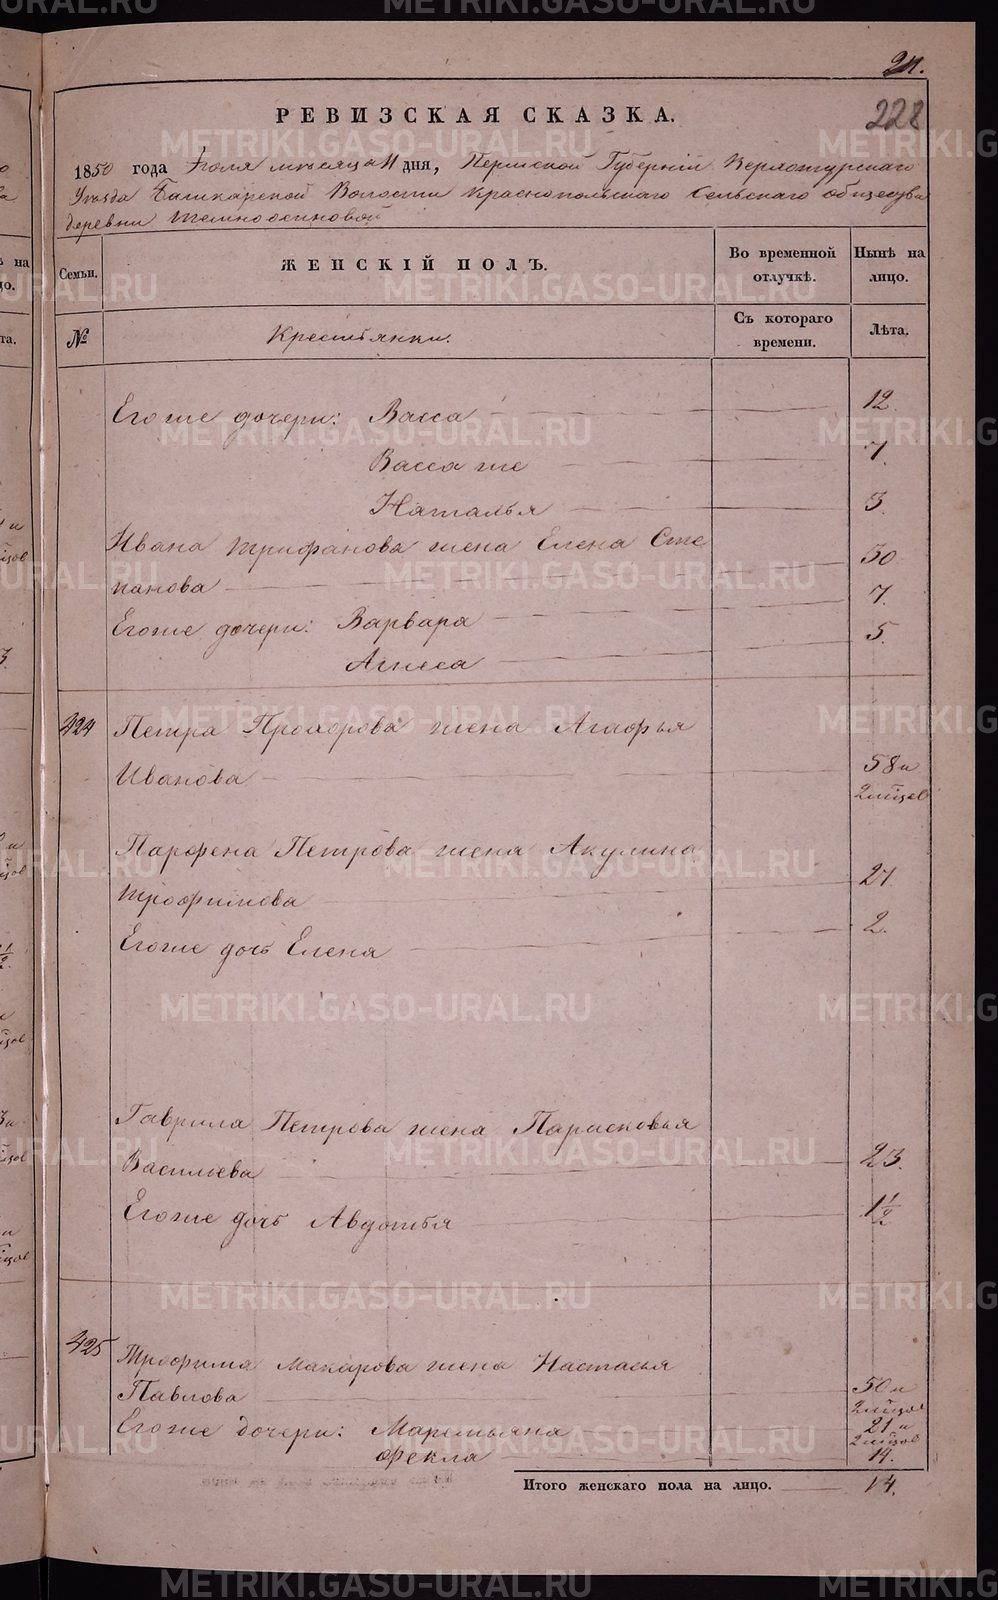 228
РЕВИЗСКАЯ СКАЗКА.
1850 года Іюля мѣсяца 11 дня, Пермской Губерніи Верхотурскаго
Уѣзда Башкарской Волости Краснопольскаго Сельскаго общества
деревни Темноосиновой
Семьи. ЖЕНСКІЙ ПОЛЪ. Во временной отлучкѣ. Нынѣ на лицо.
№ Крестьянки. Съ котораго времени. Лѣта.
Егоже дочери: Васса 12.
Васса же 7.
Наталья 3.
Ивана Трифанова жена Елена Сте
панова 30
Егоже дочери: Варвара 7.
Агнеса 5.
424 Петра Прохорова жена Агафья
Иванова 58 и
2 мѣсяц
Парфена Петрова жена Акулина
Трофимова 27
Егоже дочь Елена 2.
Гаврила Петрова жена Парасковья
Васильева 23.
Егоже дочь Авдотья 1 1/2
425 Трофима Макарова жена Настасья
Павлова 50 и
2 мѣсяц
Егоже дочери: Маремьяна 21 и
2 мѣсяц
Фекла 14.
Итого женскаго пола на лицо. 14.
METRIKI.GASO-URAL.RU